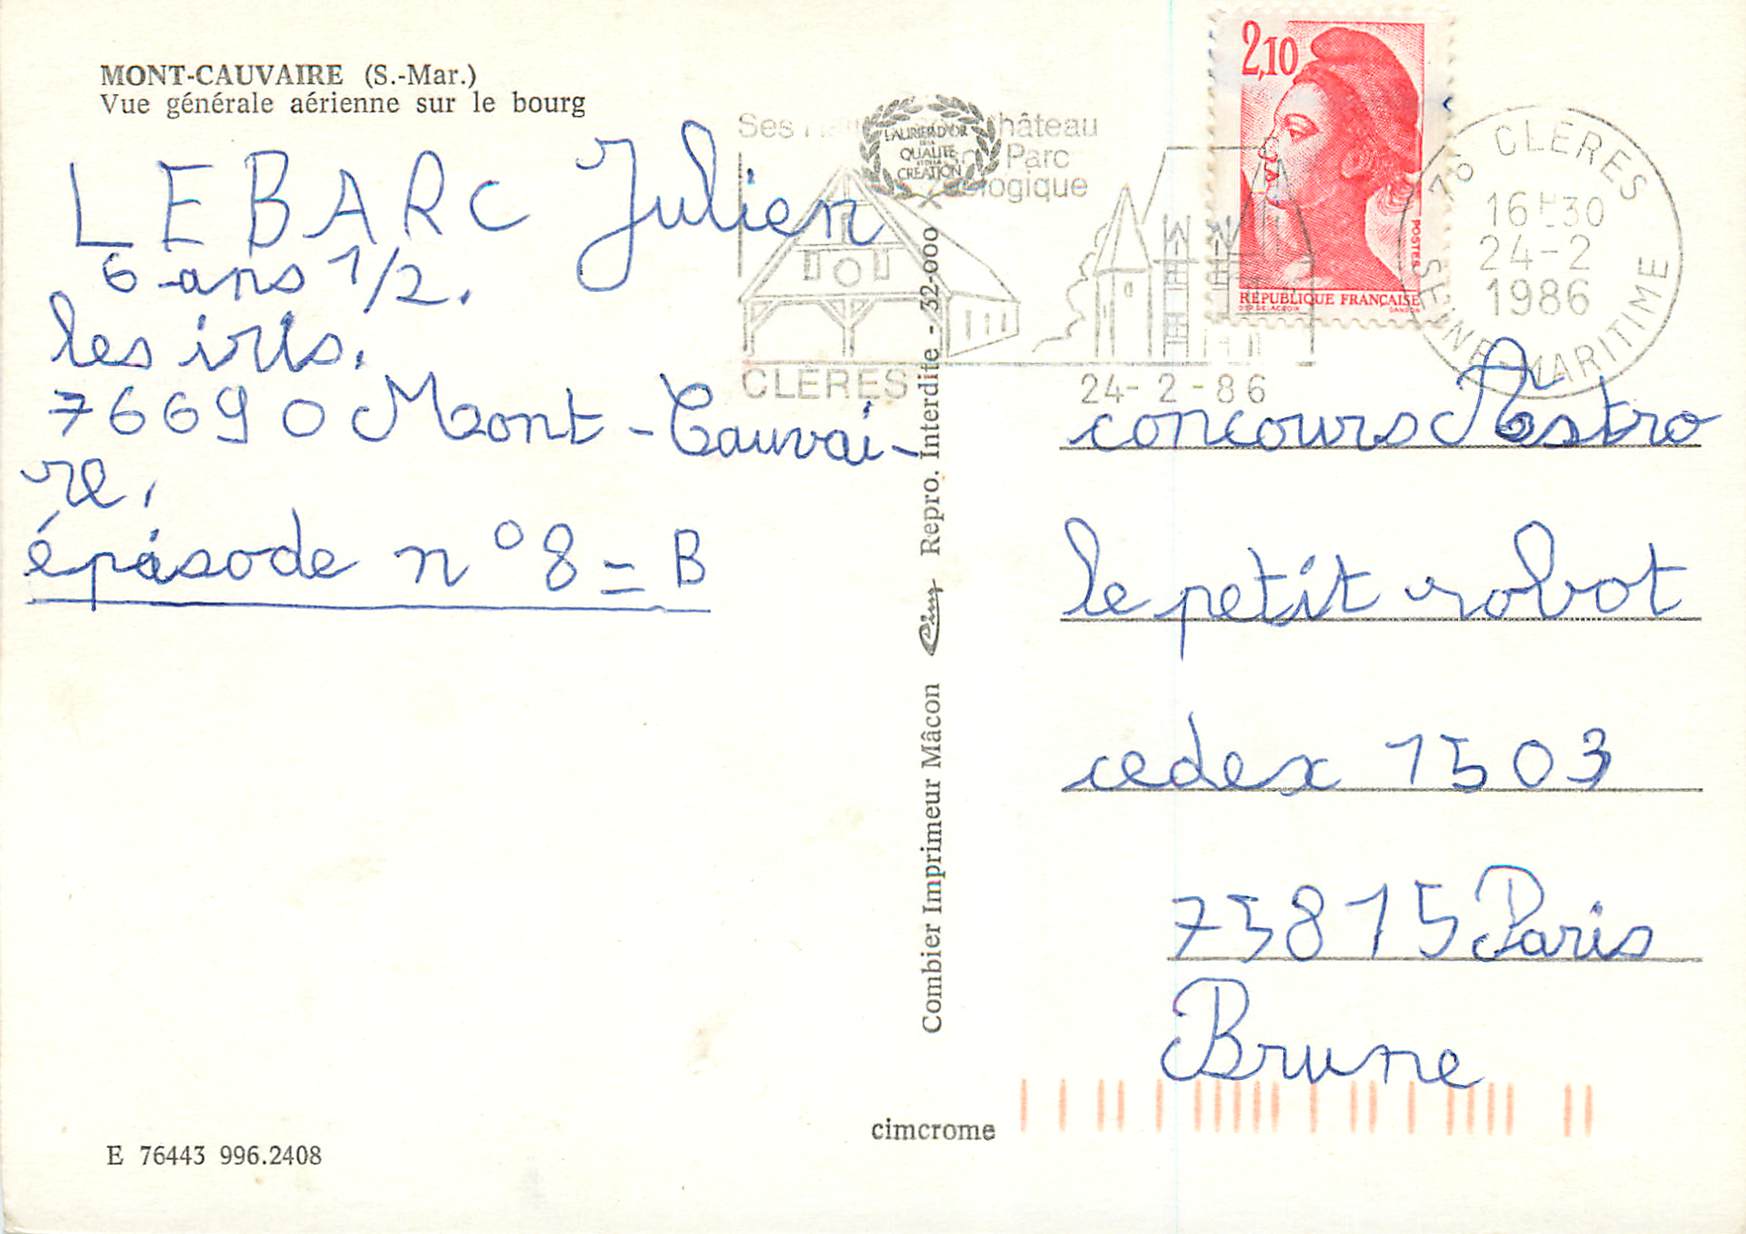 MONT-CAUVAIRE (S.-Mar.)
Vue générale aérienne sur le bourg
LEBARC Julien
6 ans 1/2.
les iris.
76690 Mont-Cauvai-
re.
épisode n° 8 = B
E 76443 996.2408
Combier Imprimeur Mâcon Cim Repro. Interdite - 32-000
cimcrome
Ses
LAURIER D'OR
DE LA
QUALITÉ
ET DE LA
CRÉATION
Parc
CLERES
24-2-86
2,10
POSTES
RÉPUBLIQUE FRANÇAISE
76 CLERES
16H30
24-2
1986
SEINE MARITIME
concours Astro
le petit robot
cedex 1503
75815 Paris
Brune